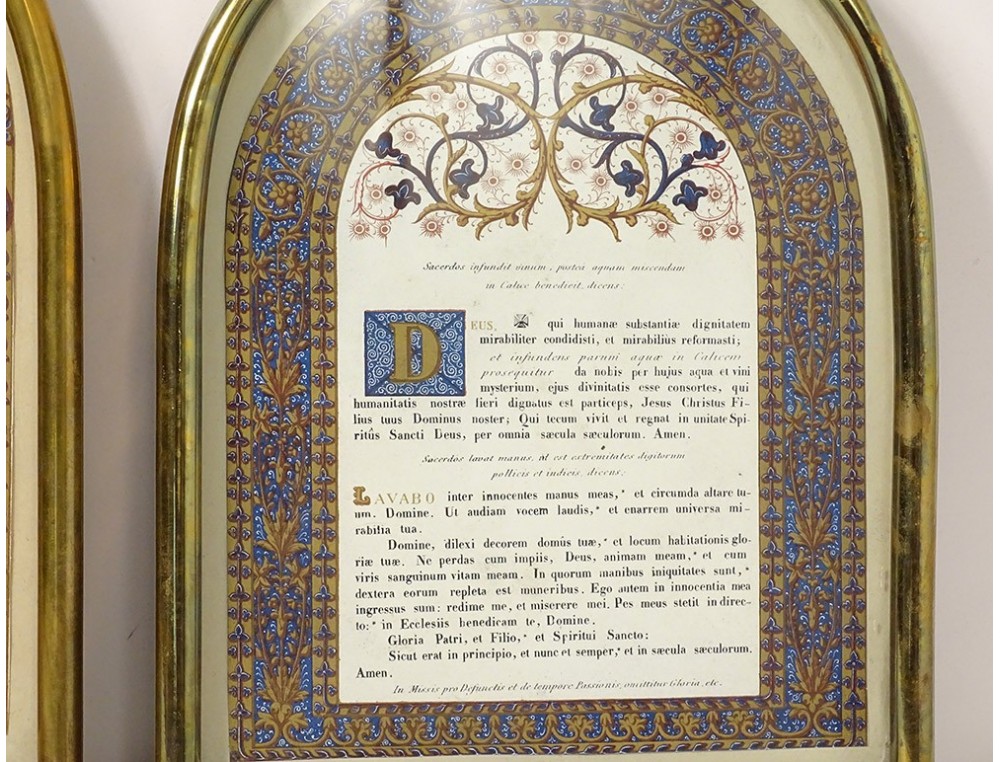 Sacerdos infundit vinum, postea aquam miscendam
in Calice benedicit, dicens:
DEUS, ✠ qui humanæ substantiæ dignitatem
mirabiliter condidisti, et mirabilius reformasti;
et infundens parum aquæ in Calicem
prosequitur da nobis per hujus aqua et vini
mysterium, ejus divinitatis esse consortes, qui
humanitatis nostræ fieri dignatus est particeps, Jesus Christus Fi-
lius tuus Dominus noster; Qui tecum vivit et regnat in unitate Spi-
ritûs Sancti Deus, per omnia sæcula sæculorum. Amen.
Sacerdos lavat manus, id est extremitates digitorum
pollicis et indicis, dicens:
LAVABO inter innocentes manus meas, * et circumda altare tu-
um. Domine. Ut audiam vocem laudis, * et enarrem universa mi-
rabilia tua.
Domine, dilexi decorem domûs tuæ, * et locum habitationis glo-
riæ tuæ. Ne perdas cum impiis, Deus, animam meam, * et cum
viris sanguinum vitam meam. In quorum manibus iniquitates sunt, *
dextera eorum repleta est muneribus. Ego autem in innocentia mea
ingressus sum: redime me, et miserere mei. Pes meus stetit in direc-
to: * in Ecclesiis benedicam te, Domine.
Gloria Patri, et Filio, * et Spiritui Sancto:
Sicut erat in principio, et nunc et semper, * et in sæcula sæculorum.
Amen.
In Missis pro Defunctis et de tempore Passionis, omittitur Gloria, etc.